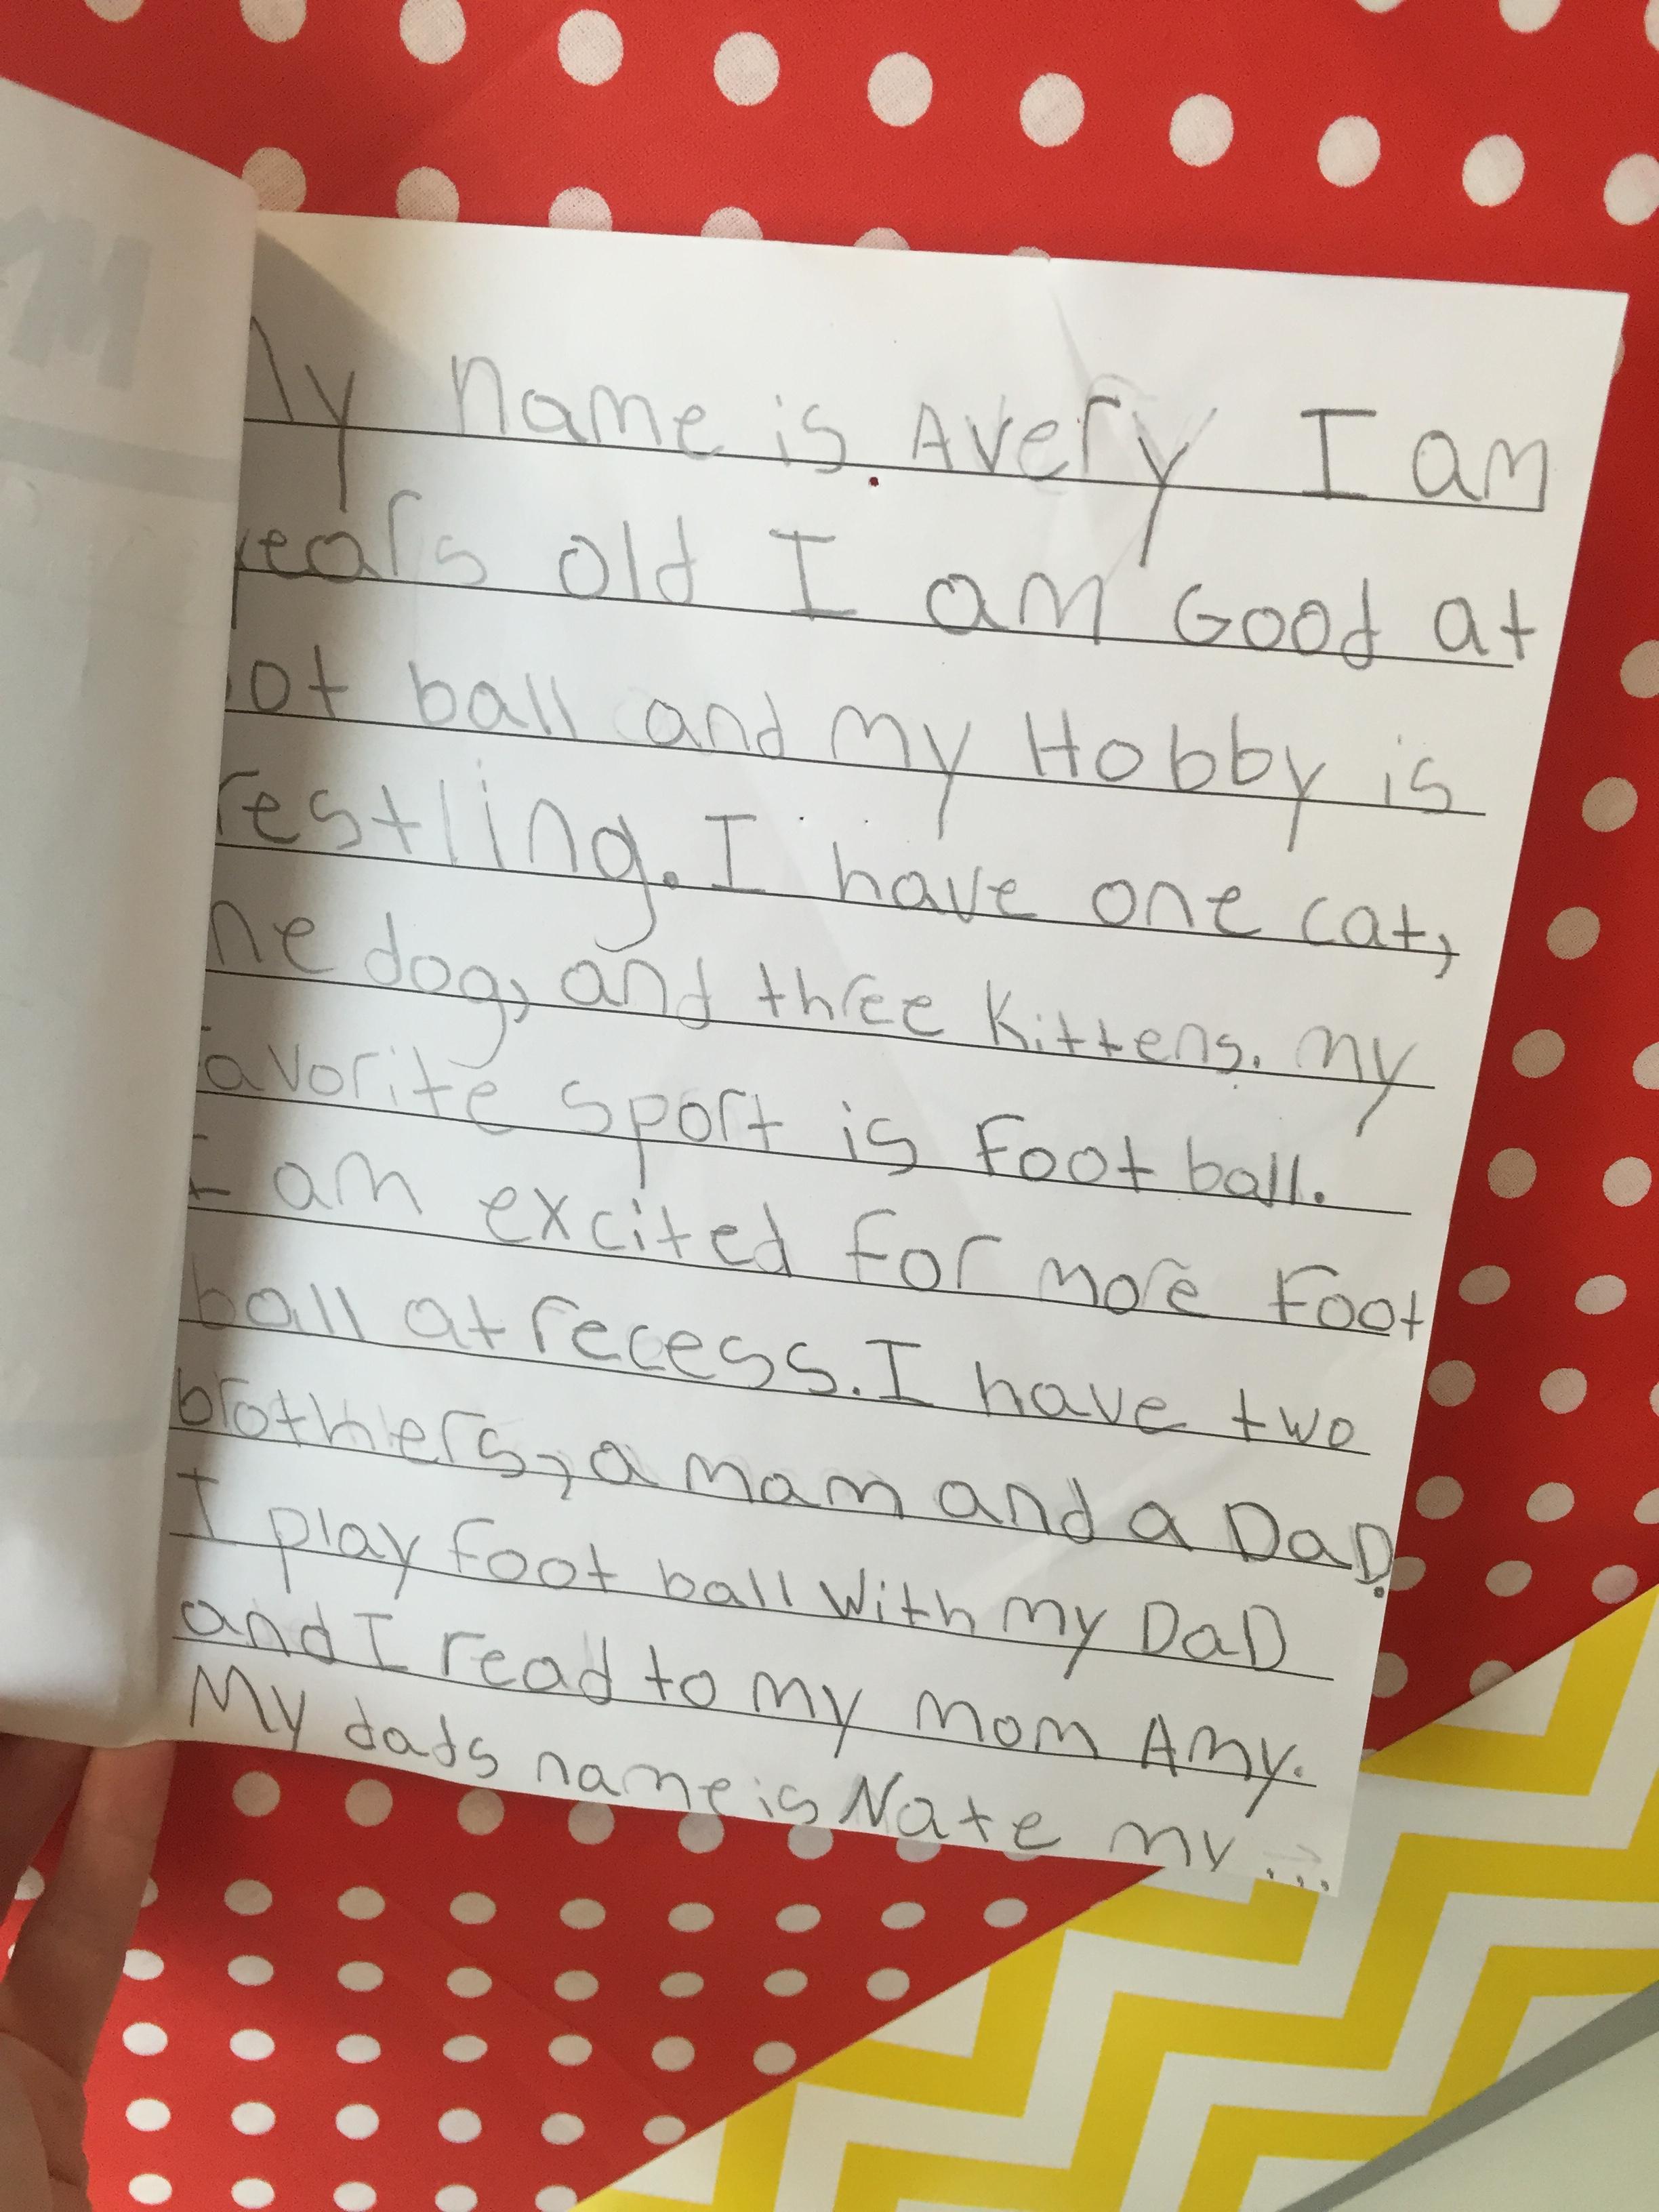 My name is Avery I am
years old I am Good at
ot ball and my Hobby is
restling. I have one cat,
ne dog, and three kittens. my
avorite sport is Foot ball.
I am excited for more foot
ball at recess. I have two
brothers, a mam and a DaD.
I play foot ball with my DaD
and I read to my mom Amy.
My dads name is Nate my